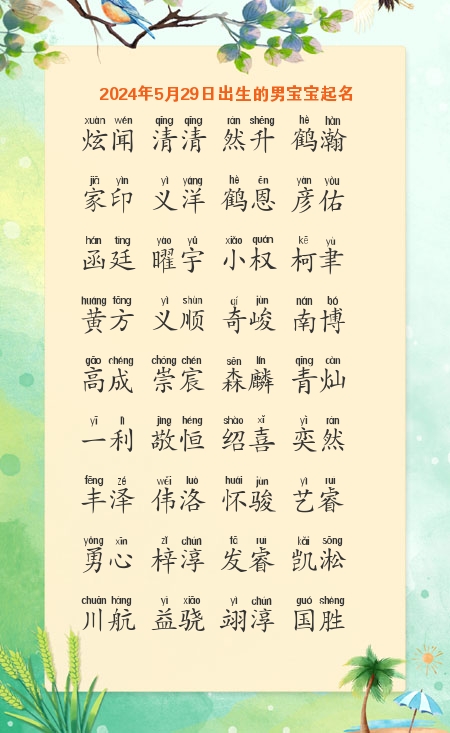 2024年5月29日出生的男宝宝起名
xuàn wén qīng qīng rán shēng hè hàn
炫闻 清清 然升 鹤瀚
jiā yìn yì yáng hè ēn yàn yòu
家印 义洋 鹤恩 彦佑
hán tíng yào yǔ xiǎo quán kē yù
函廷 曜宇 小权 柯聿
huáng fāng yì shùn qí jùn nán bó
黄方 义顺 奇峻 南博
gāo chéng chóng chén sēn lín qīng càn
高成 崇宸 森麟 青灿
yī lì jìng héng shào xǐ yì rán
一利 敬恒 绍喜 奕然
fēng zé wěi luò huái jùn yì ruì
丰泽 伟洛 怀骏 艺睿
yǒng xīn zǐ chún fā ruì kǎi sōng
勇心 梓淳 发睿 凯淞
chuān háng yì xiāo yì chún guó shèng
川航 益骁 翊淳 国胜